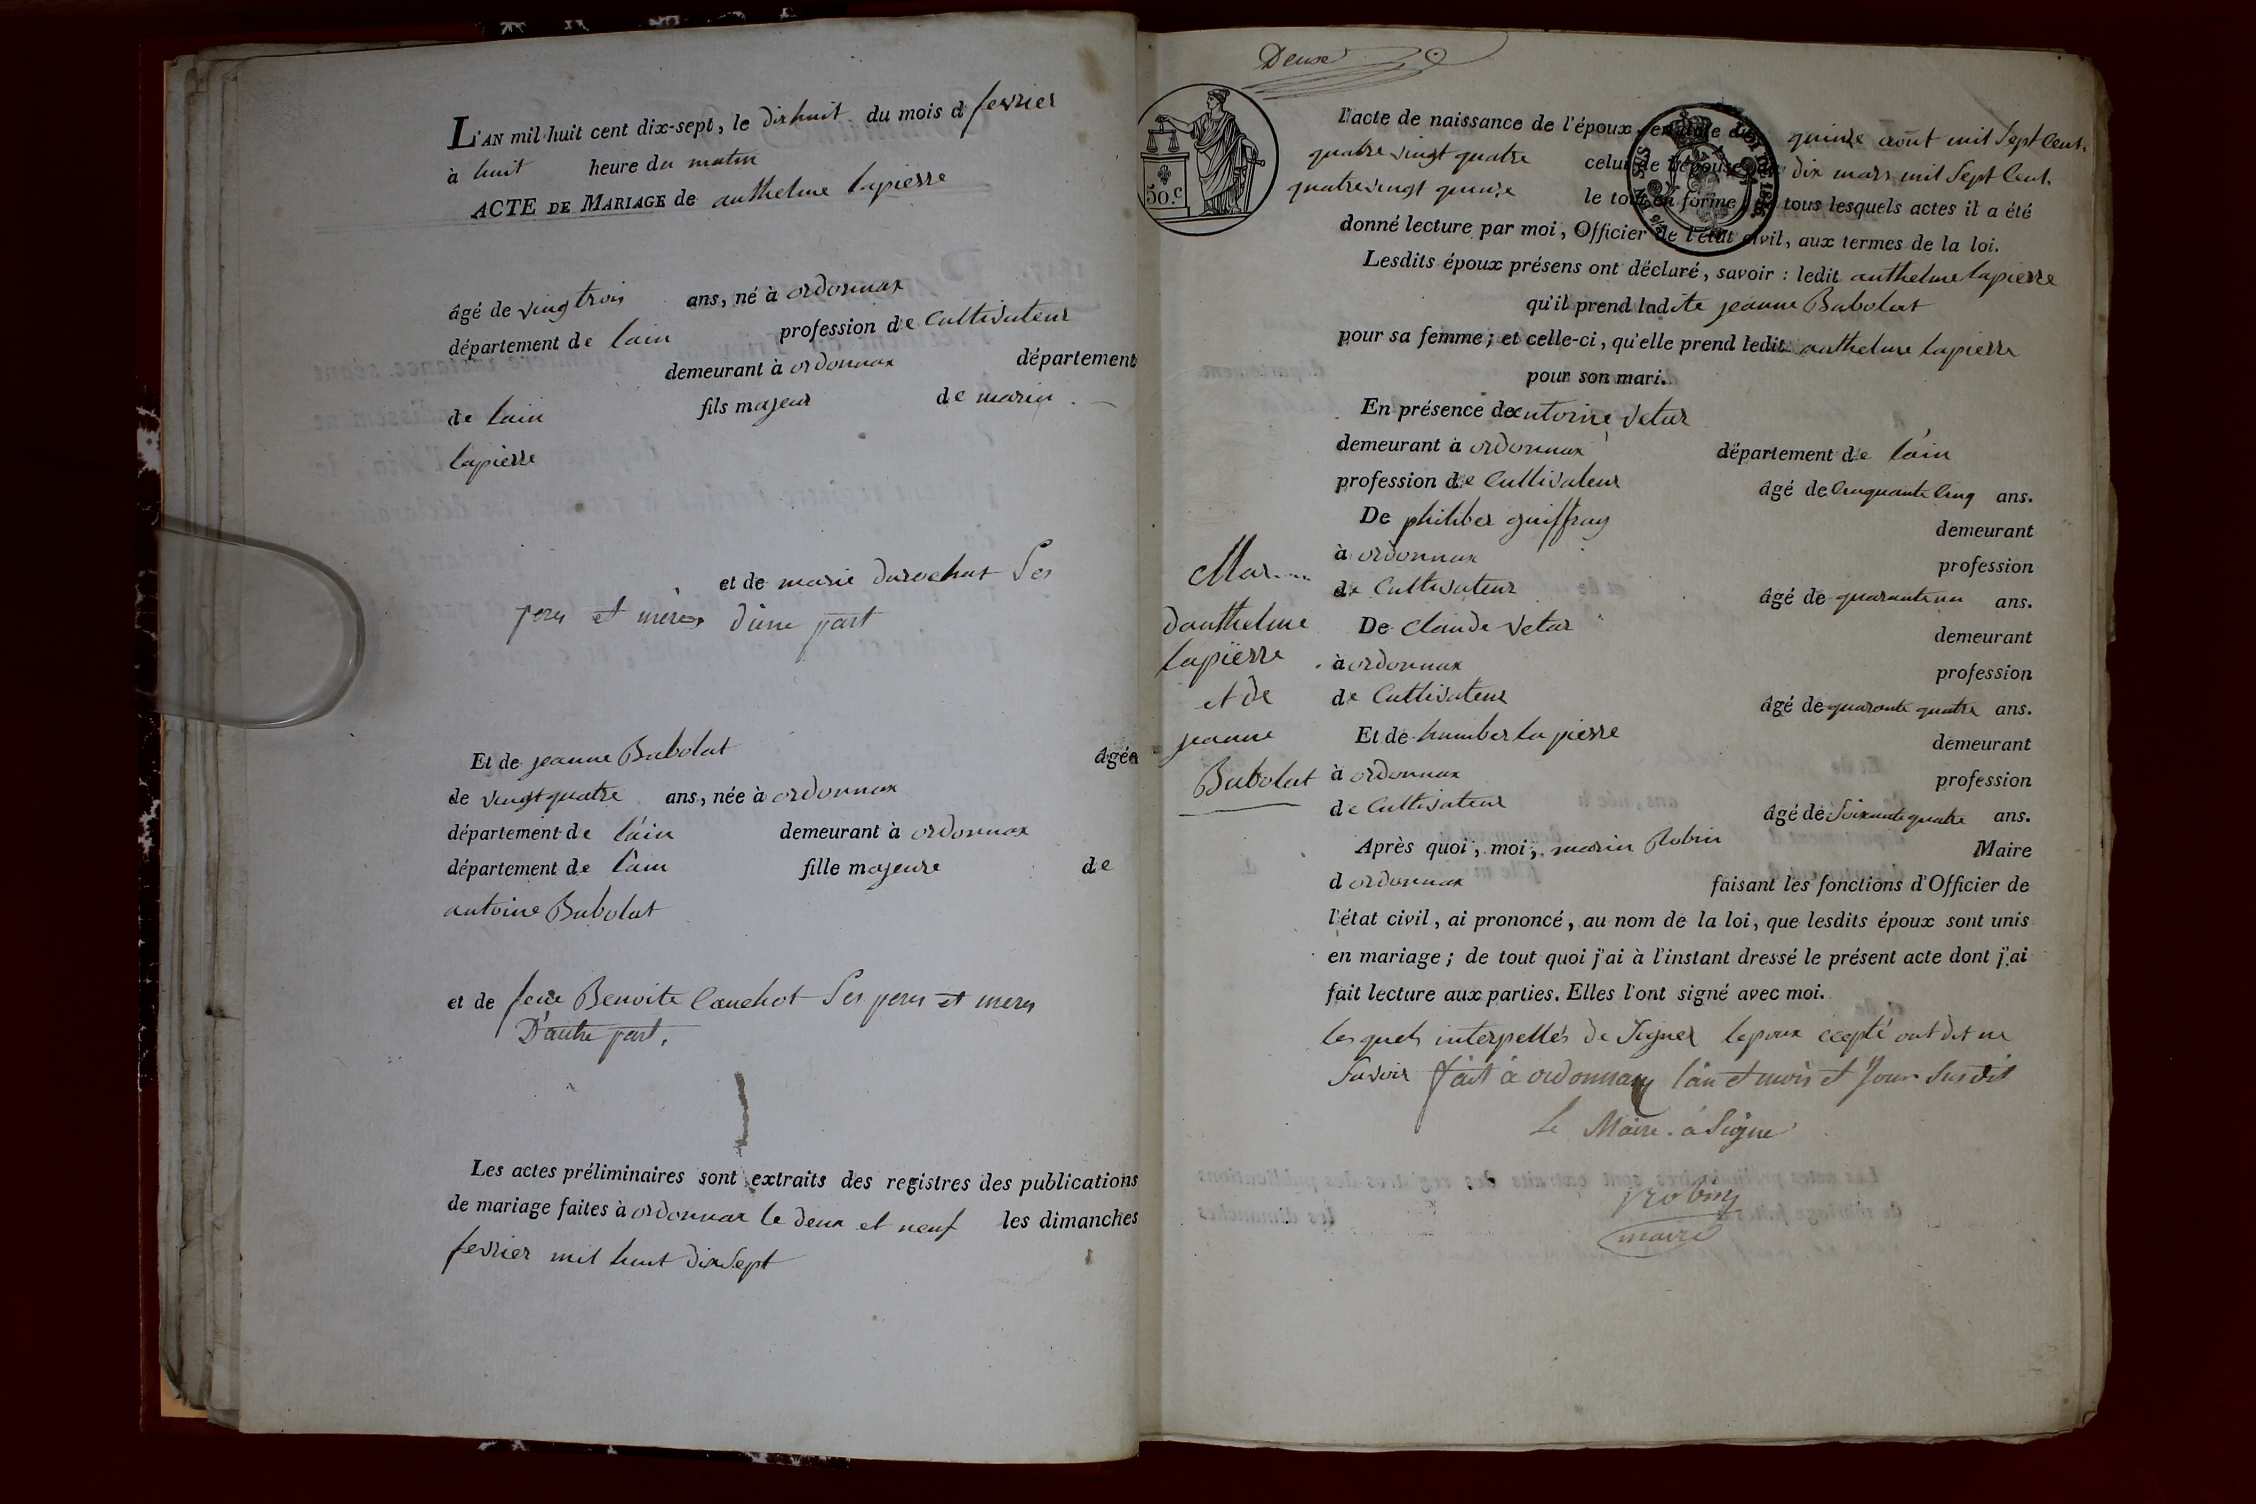 L'AN mil huit cent dix-sept, le dixhuit du mois d fevrier
à huit heure du matin
ACTE DE MARIAGE de anthelme lapierre
âgé de vingtrois ans, né à ordonnax
département de lain profession de Cultivateur
demeurant à ordonnax département
de lain fils majeur de marin
lapierre
et de marie durochat Ses
peres et mères d'une part
Et de jeanne Babolat âgée
de vingtquatre ans, née à ordonnax
département de l'ain demeurant à ordonnax
département de l'ain fille majeure de
antoine Babolat
et de feue Benoite Cauchot Ses peres et meres
D'autre part.
Les actes préliminaires sont extraits des registres des publications
de mariage faites à ordonnax le deux et neuf les dimanches
fevrier mil huit dixsept
Deuxe
50.c
l'acte de naissance de l'époux quinze août mil Sept Cent
quatre vingt quatre celui de l'épouse dix mars mil Sept Cent
quatrevingt quinze le tout en forme tous lesquels actes il a été
donné lecture par moi, Officier de l'état civil, aux termes de la loi.
Lesdits époux présens ont déclaré, savoir : ledit anthelme lapierre
qu'il prend ladite jeanne Babolat
pour sa femme ; et celle-ci, qu'elle prend ledit anthelme lapierre
pour son mari.
En présence de antoine Vetar
demeurant à ordonnax département de l'ain
profession de Cultivateur âgé de Cinquante Cinq ans.
De philiber guiffray demeurant
à ordonnax profession
de Cultivateur âgé de quaranteun ans.
De Claude Vetar demeurant
à ordonnax profession
de Cultivateur âgé de quarante quatre ans.
Et de humber lapierre demeurant
à ordonnax profession
de Cultivateur âgé de Soixantequatre ans.
Après quoi, moi, marin Robin Maire
d ordonnax faisant les fonctions d'Officier de
l'état civil, ai prononcé, au nom de la loi, que lesdits époux sont unis
en mariage ; de tout quoi j'ai à l'instant dressé le présent acte dont j'ai
fait lecture aux parties. Elles l'ont signé avec moi.
les quels interpellés de Signer lepoux ecepté ont dit ne
Savoir fait à ordonnax l'an et mois et Jour Susdit
Le Maire a Signe
Robin
maire
Mar
danthelme
lapierre
et de
jeanne
Babolat